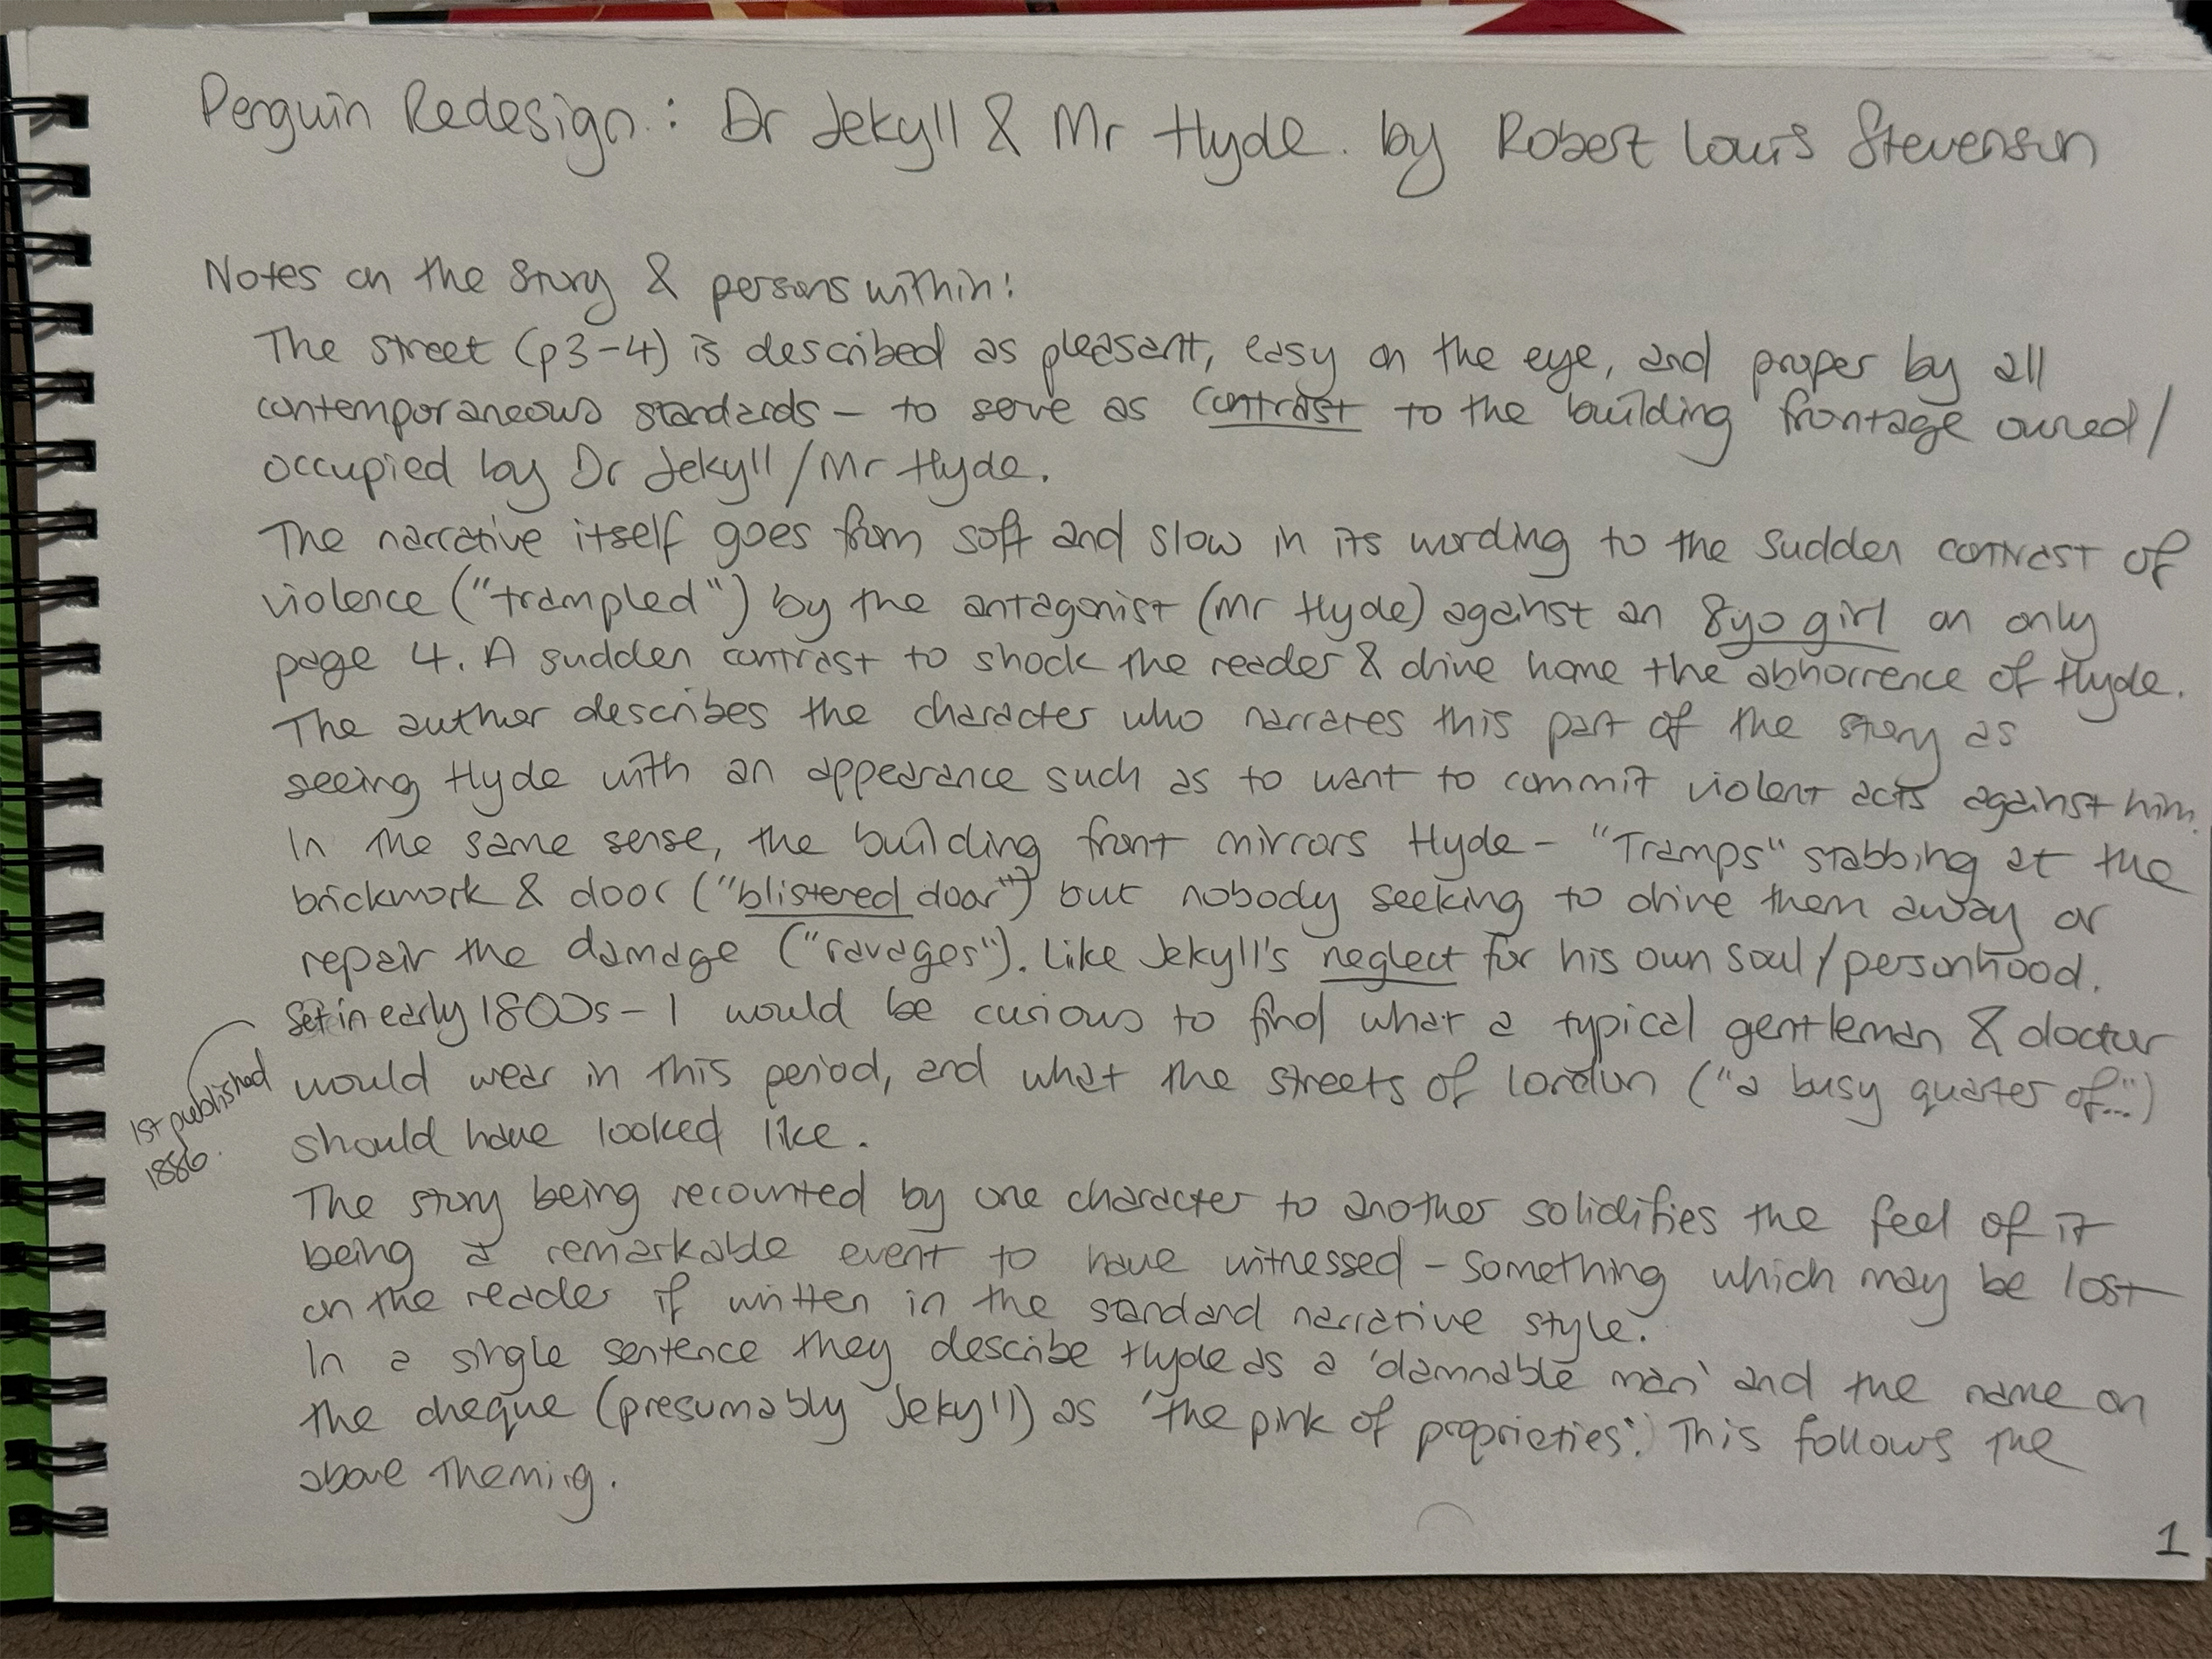 Penguin Redesign : Dr Jekyll & Mr Hyde. by Robert Louis Stevenson
Notes on the Story & persons within:
The street (p3-4) is described as pleasant, easy on the eye, and proper by all
contemporaneous standards - to serve as contrast to the building frontage owned/
occupied by Dr Jekyll/Mr Hyde.
The narrative itself goes from soft and slow in its wording to the sudden contrast of
violence ("trampled") by the antagonist (Mr Hyde) against an 8yo girl on only
page 4. A sudden contrast to shock the reader & drive home the abhorrence of Hyde.
The author describes the character who narrates this part of the story as
seeing Hyde with an appearance such as to want to commit violent acts against him.
In the same sense, the building front mirrors Hyde - "Tramps" stabbing at the
brickwork & door ("blistered door") but nobody seeking to drive them away or
repair the damage ("ravages"). Like Jekyll's neglect for his own soul/personhood.
Set in early 1800s - I would be curious to find what a typical gentleman & doctor
would wear in this period, and what the streets of London ("a busy quarter of...")
should have looked like.
1st published
1886.
The story being recounted by one character to another solidifies the feel of it
being a remarkable event to have witnessed - something which may be lost
on the reader if written in the standard narrative style.
In a single sentence they describe Hyde as a 'damnable man' and the name on
the cheque (presumably Jekyll) as 'the pink of proprieties'. This follows the
above theming.
1